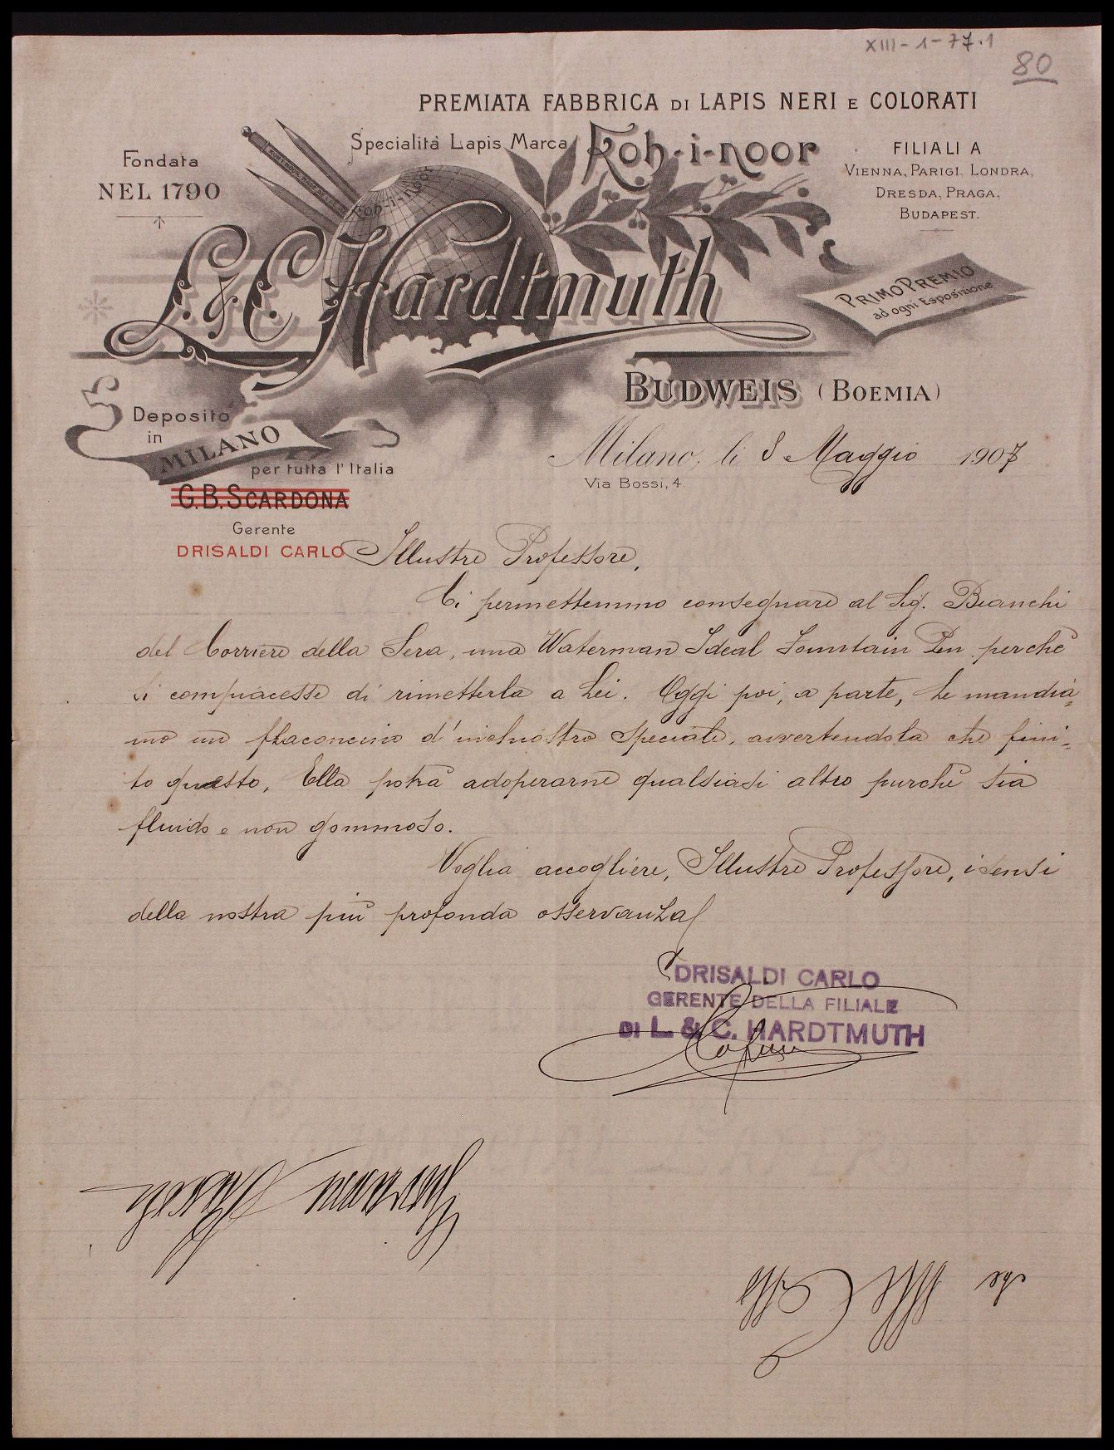 XIII-1-77.1
80
PREMIATA FABBRICA DI LAPIS NERI E COLORATI
Specialità Lapis Marca Koh-i-noor
Fondata
NEL 1790
KOH-I-NOOR
FILIALI A
VIENNA, PARIGI, LONDRA,
DRESDA, PRAGA,
BUDAPEST.
L. & C. Hardtmuth
PRIMO PREMIO
ad ogni Esposizione
BUDWEIS (BOEMIA)
Deposito
in
MILANO
per tutta l'Italia
G.B. SCARDONA
Gerente
DRISALDI CARLO
Milano, li 8 Maggio 1907
Via Bossi, 4
Illustre Professore,
Ci permettemmo consegnare al Sig. Bianchi
del Corriere della Sera, una Waterman Ideal Fountain Pen perchè
si compiacesse di rimetterla a Lei. Oggi poi, a parte, Le mandia-
mo un flaconcino d'inchiostro speciale, avvertendola che fini-
to questo, Ella potrà adoperarne qualsiasi altro purchè sia
fluido e non gommoso.
Voglia accogliere, Illustre Professore, i sensi
della nostra più profonda osservanza
DRISALDI CARLO
GERENTE DELLA FILIALE
DI L. & C. HARDTMUTH